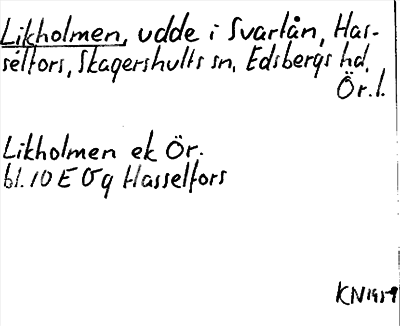 Likholmen, udde i Svartån, Has-
selfors, Skagershults sn, Edsbergs hd.
Ör. l.
Likholmen ek Ör.
bl. 10 E Og Hasselfors
KN 1959